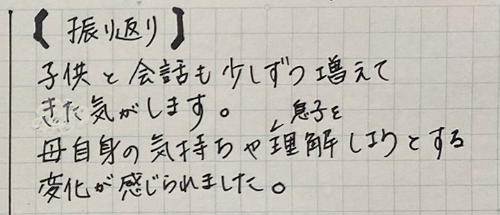 【振り返り】
子供と会話も少しずつ増えて
きた気がします。
母自身の気持ちや息子を理解しようとする
変化が感じられました。